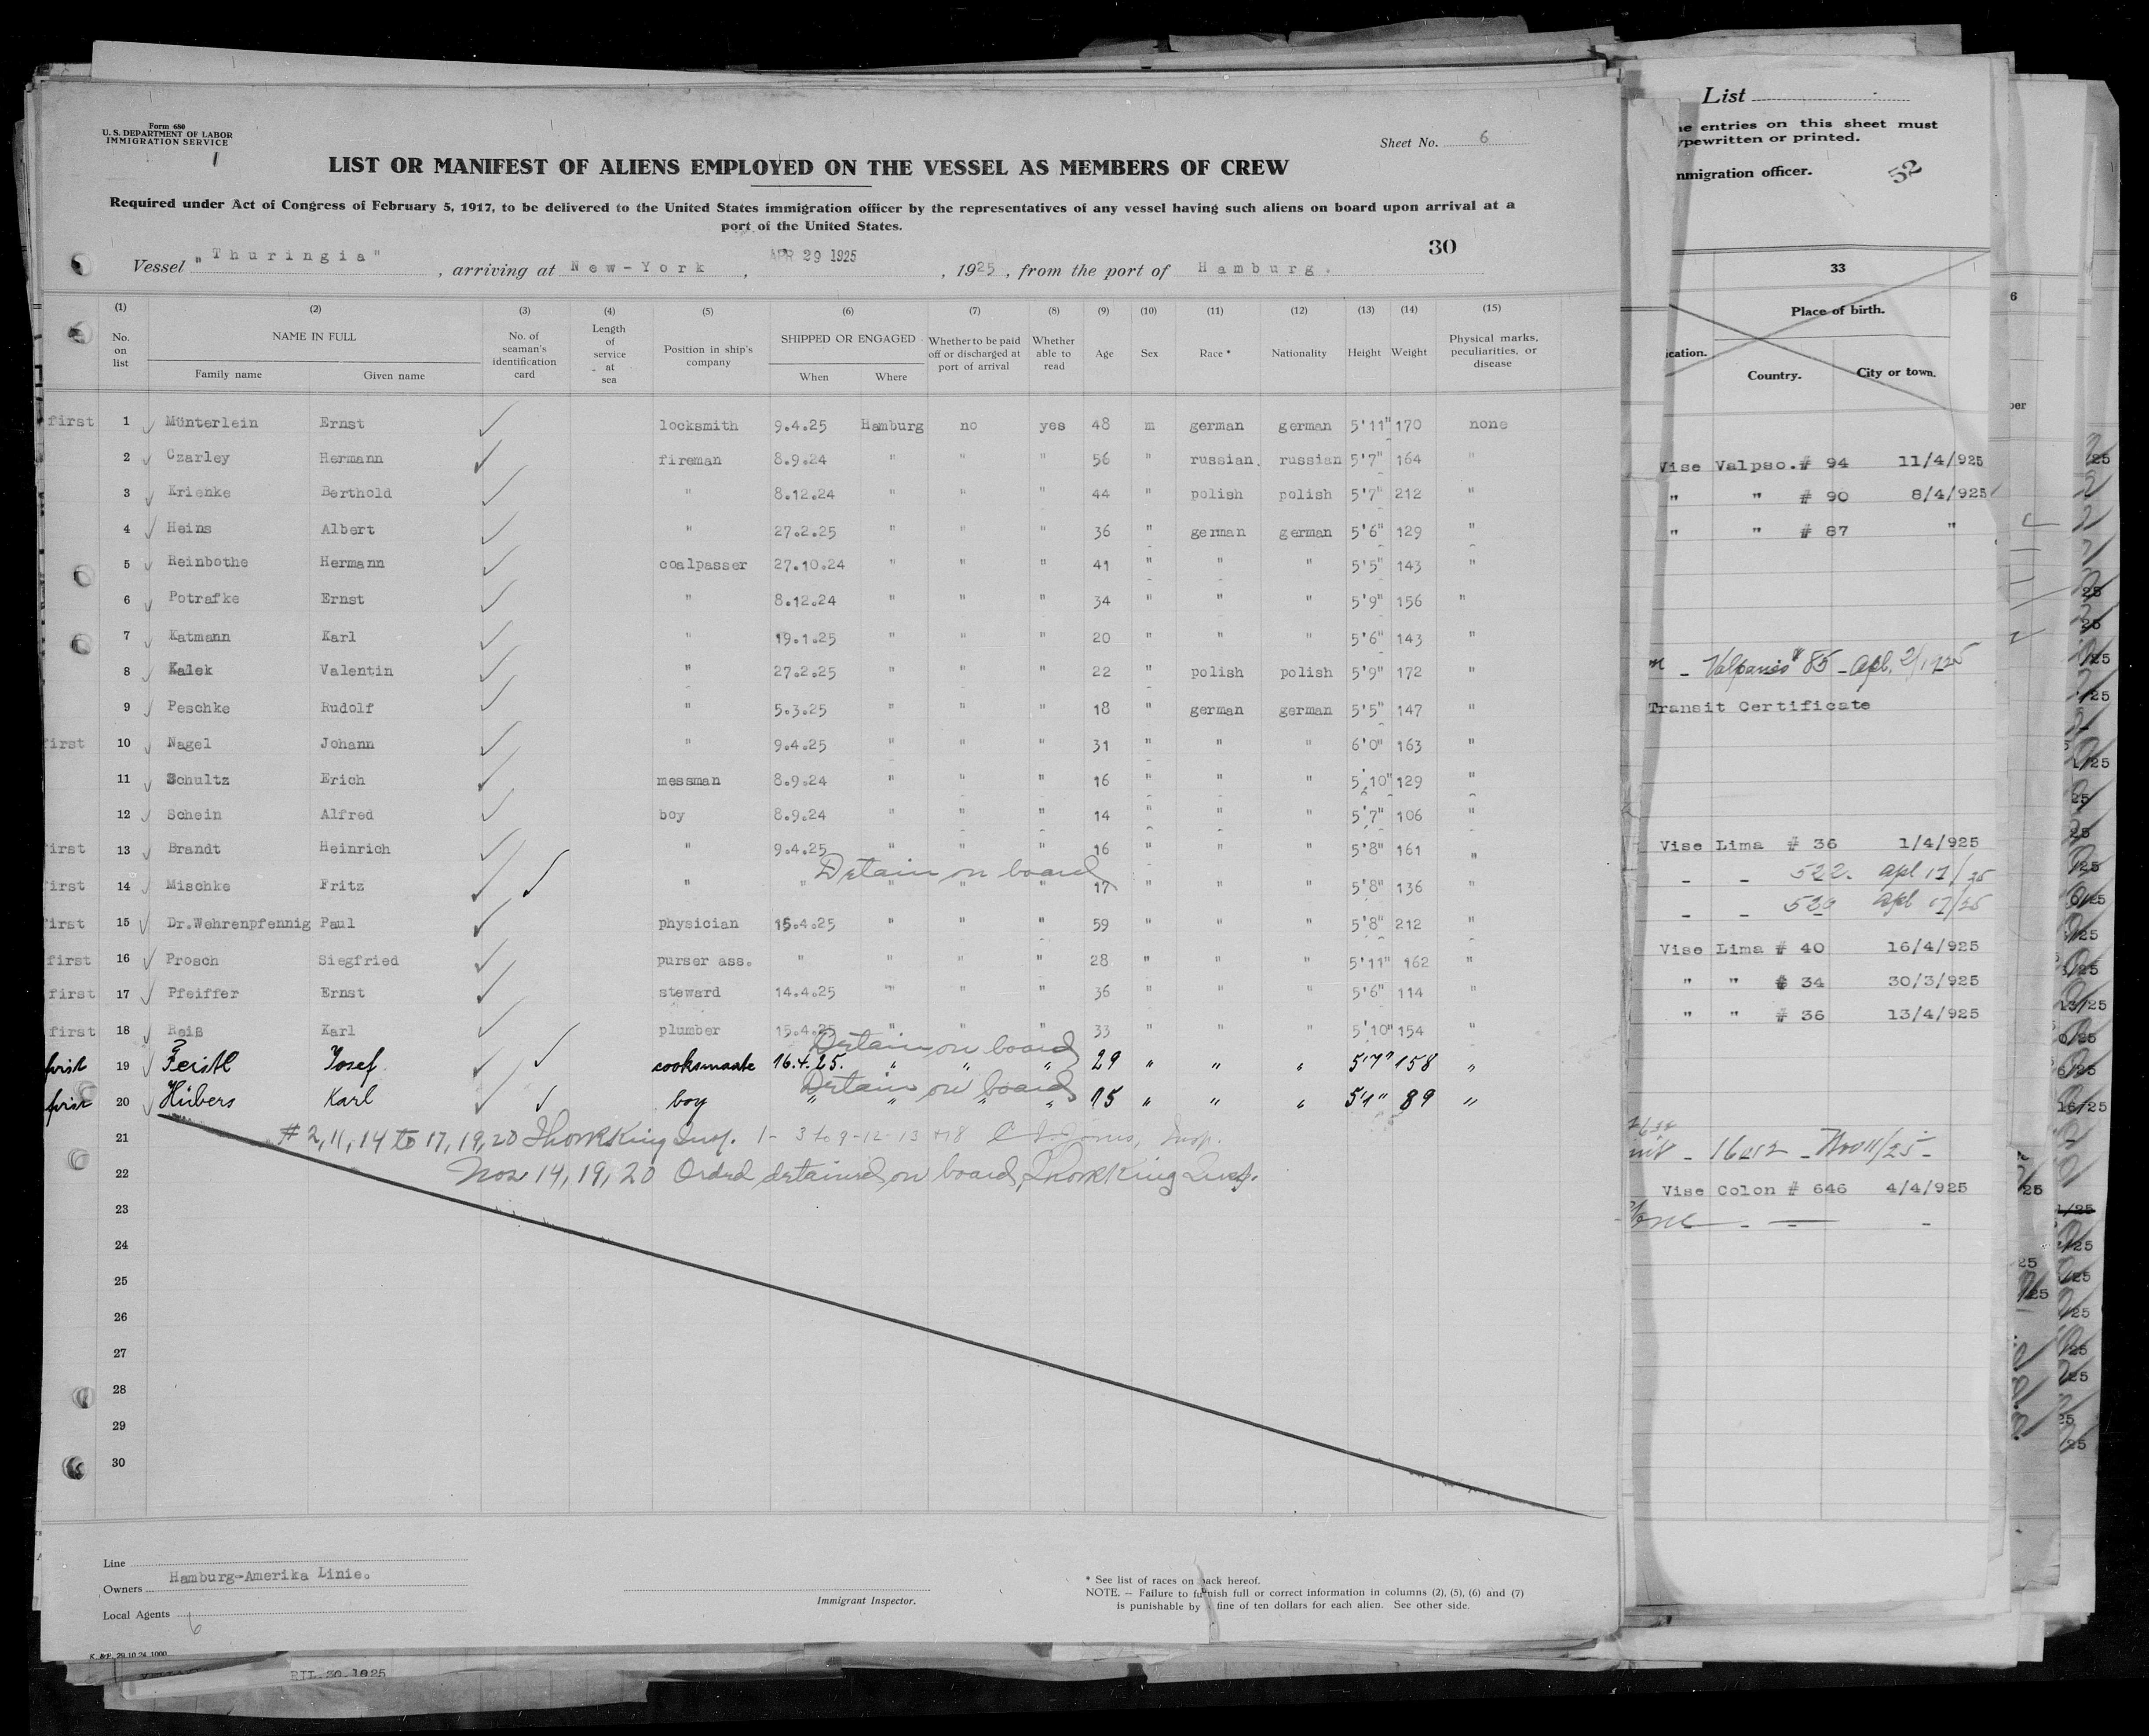 Form 680
U. S. DEPARTMENT OF LABOR
IMMIGRATION SERVICE
1
Sheet No. 6
LIST OR MANIFEST OF ALIENS EMPLOYED ON THE VESSEL AS MEMBERS OF CREW
Required under Act of Congress of February 5, 1917, to be delivered to the United States immigration officer by the representatives of any vessel having such aliens on board upon arrival at a
port of the United States.
30
Vessel "Thuringia", arriving at New-York, APR 29 1925, 1925, from the port of Hamburg.
(1) (2) (3) (4) (5) (6) (7) (8) (9) (10) (11) (12) (13) (14) (15)
No. on list NAME IN FULL Family name Given name No. of seaman's identification card Length of service at sea Position in ship's company SHIPPED OR ENGAGED When Where Whether to be paid off or discharged at port of arrival Whether able to read Age Sex Race * Nationality Height Weight Physical marks, peculiarities, or disease
first 1 Münterlein Ernst locksmith 9.4.25 Hamburg no yes 48 m german german 5'11" 170 none
2 Czarley Hermann fireman 8.9.24 " " " 56 " russian. russian 5'7" 164 "
3 Krienke Berthold " 8.12.24 " " " 44 " polish polish 5'7" 212 "
4 Heins Albert " 27.2.25 " " " 36 " german german 5'6" 129 "
5 Reinbothe Hermann coalpasser 27.10.24 " " " 41 " " " 5'5" 143 "
6 Potrafke Ernst " 8.12.24 " " " 34 " " " 5'9" 156 "
7 Katmann Karl " 19.1.25 " " " 20 " " " 5'6" 143 "
8 Kalek Valentin " 27.2.25 " " " 22 " polish polish 5'9" 172 "
9 Peschke Rudolf " 5.3.25 " " " 18 " german german 5'5" 147 "
first 10 Nagel Johann " 9.4.25 " " " 31 " " " 6'0" 163 "
11 Schultz Erich messman 8.9.24 " " " 16 " " " 5'10" 129 "
12 Schein Alfred boy 8.9.24 " " " 14 " " " 5'7" 106 "
first 13 Brandt Heinrich " 9.4.25 " " " 16 " " " 5'8" 161 "
Detain on board
first 14 Mischke Fritz " " " " " 17 " " " 5'8" 136 "
first 15 Dr.Wehrenpfennig Paul physician 15.4.25 " " " 59 " " " 5'8" 212 "
first 16 Prosch Siegfried purser ass. " " " " 28 " " " 5'11" 162 "
first 17 Pfeiffer Ernst steward 14.4.25 " " " 36 " " " 5'6" 114 "
first 18 Reiß Karl plumber 15.4.25 " " " 33 " " " 5'10" 154 "
Detain on board
first 19 Feistl Josef cooksmaate 16.4.25. " " " 29 " " " 5'7" 158 "
Detain on board
first 20 Hübers Karl boy " " " " 15 " " " 5'1" 89 "
21 # 2, 11, 14 to 17, 19, 20 Insp. 1- 3 to 9-12-13 + 18 Insp.
22 Nos 14, 19, 20 Ordrd detained on board,
23
24
25
26
27
28
29
30
Line
Owners Hamburg-Amerika Linie.
Local Agents 6
Immigrant Inspector.
* See list of races on back hereof.
NOTE. — Failure to furnish full or correct information in columns (2), (5), (6) and (7)
is punishable by fine of ten dollars for each alien. See other side.
K. &P. 29.10.24. 1000
RIL.30.1925
List
entries on this sheet must
ypewritten or printed.
mmigration officer.
52
33
Place of birth.
ication.
Country. City or town.
Vise Valpso.# 94 11/4/925
" " # 90 8/4/925
" " # 87 "
Transit Certificate
Vise Lima # 36 1/4/925
522. Apl 17/25
530 Apl 17/25
Vise Lima # 40 16/4/925
" " # 34 30/3/925
" " # 36 13/4/925
Vise Colon # 646 4/4/925